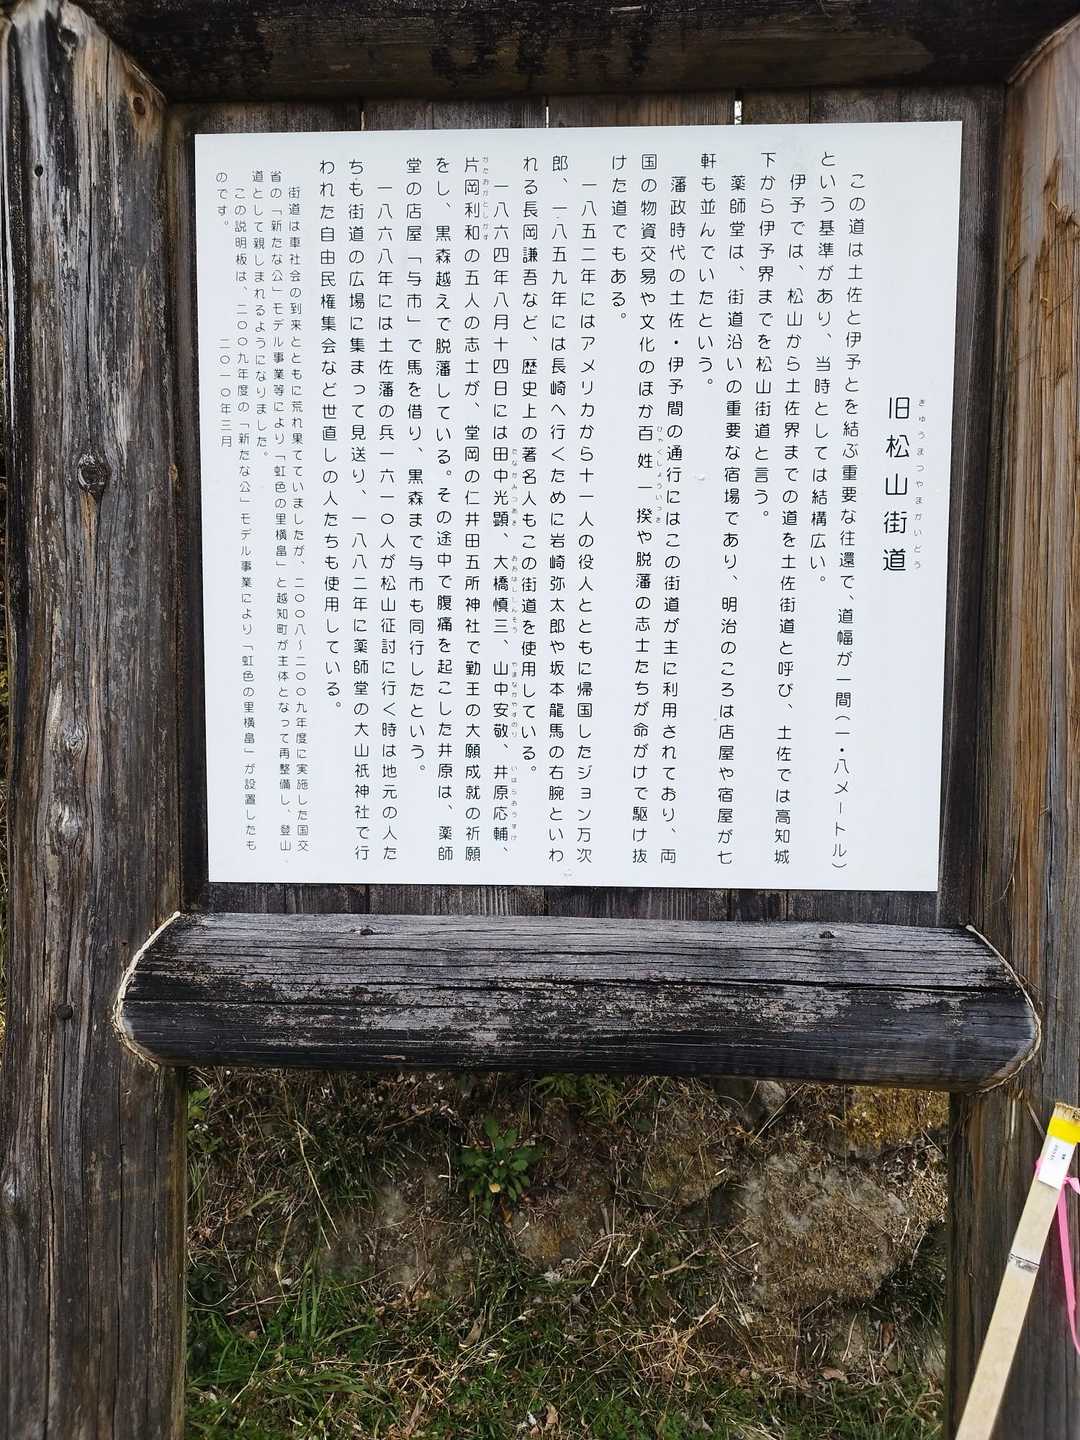 旧松山街道
きゅうまつやまかいどう
この道は土佐と伊予とを結ぶ重要な往還で、道幅が一間(一・八メートル)
という基準があり、当時としては結構広い。
伊予では、松山から土佐界までの道を土佐街道と呼び、土佐では高知城
下から伊予界までを松山街道と言う。
薬師堂は、街道沿いの重要な宿場であり、明治のころは店屋や宿屋が七
軒も並んでいたという。
藩政時代の土佐・伊予間の通行にはこの街道が主に利用されており、両
国の物資交易や文化のほか百姓一揆や脱藩の志士たちが命がけで駆け抜
ひゃくしょういっき
けた道でもある。
一八五二年にはアメリカから十一人の役人とともに帰国したジョン万次
郎、一八五九年には長崎へ行くために岩崎弥太郎や坂本龍馬の右腕といわ
れる長岡謙吾など、歴史上の著名人もこの街道を使用している。
一八六四年八月十四日には田中光顕、大橋慎三、山中安敬、井原応輔、
たなかみつあき おおはししんぞう やまなかやすのり いはらおうすけ
片岡利和の五人の志士が、堂岡の仁井田五所神社で勤王の大願成就の祈願
かたおかとしかず
をし、黒森越えで脱藩している。その途中で腹痛を起こした井原は、薬師
堂の店屋「与市」で馬を借り、黒森まで与市も同行したという。
一八六八年には土佐藩の兵一六一〇人が松山征討に行く時は地元の人た
ちも街道の広場に集まって見送り、一八八二年に薬師堂の大山祇神社で行
われた自由民権集会など世直しの人たちも使用している。
街道は車社会の到来とともに荒れ果てていましたが、二〇〇八～二〇〇九年度に実施した国交
省の「新たな公」モデル事業等により「虹色の里横畠」と越知町が主体となって再整備し、登山
道として親しまれるようになりました。
この説明板は、二〇〇九年度の「新たな公」モデル事業により「虹色の里横畠」が設置したも
のです。
二〇一〇年三月